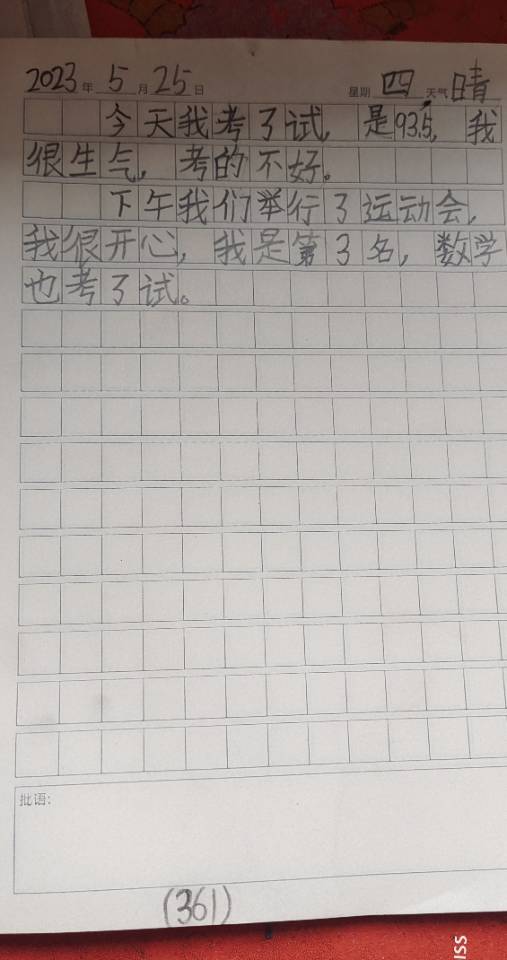 2023年 5月25日 星期 四 天气 晴
今天我考了试，是93.5，我
很生气，考的不好。
下午我们举行了运动会，
我很开心，我是第3名，数学
也考了试。
批语：
(361)
ISS